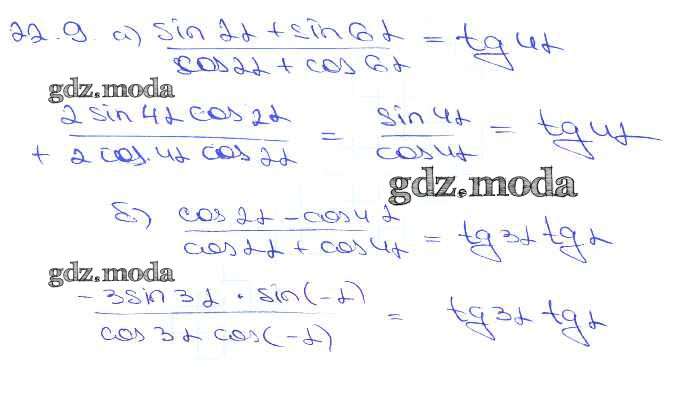 22.9. а) sin 2α + sin 6α / cos 2α + cos 6α = tg 4α
gdz.moda
2 sin 4α cos 2α / + 2 cos 4α cos 2α = sin 4α / cos 4α = tg 4α
gdz.moda
б) cos 2α - cos 4α / cos 2α + cos 4α = tg 3α tg α
gdz.moda
-3 sin 3α · sin(-α) / cos 3α cos(-α) = tg 3α tg α